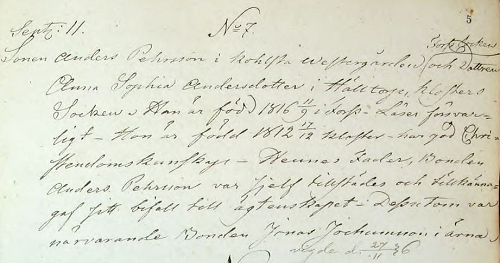 Septr: 11. No 7. 5
Fors Socken
Sonen Anders Pehrsson i Hohlsta Westergården (och
Anna Sophia Andersdotter i Hälltorp, Klosters
Socken. Han är född 1816 11/9 i Fors – Läser försvar-
ligt – Hon är född 1812 17/12 Kloster – har god Chri-
stendomskunskap – Hennes Fader, Bonden
Anders Pehrsson var sjelf tillstädes och tillkänna-
gaf sitt bifall till ägtenskapet – Dessutom var
närvarande Bonden Jonas Jochumsson i Ärna
vigde d. 27/11 36